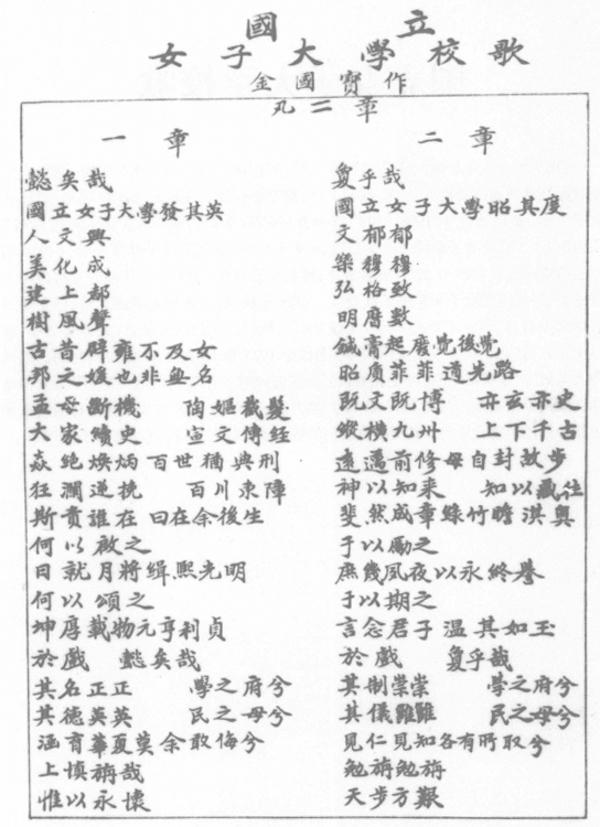 國立
女子大學校歌
金國寶作
凡二章
一章
懿矣哉
國立女子大學發其英
人文興
美化成
建上都
樹風聲
古昔辟雍不及女
邦之媛也非無名
孟母斷機 陶嫗截髮
大家續史 宣文傳經
焱絶煥炳百世猶典刑
狂瀾逆挽 百川東障
斯責誰在曰在余後生
何以啟之
日就月將緝熙光明
何以頌之
坤厚載物元亨利貞
於戲 懿矣哉
其名正正 學之府兮
其德英英 民之母兮
涵育華夏莫余敢侮兮
上慎旃哉
惟以永懷
二章
敻乎哉
國立女子大學昭其度
文郁郁
樂穆穆
弘格致
明曆數
鍼膏起廢覺後覺
昭質菲菲道先路
既文既博 亦玄亦史
縱橫九州 上下千古
遠邁前修毋自封故步
神以知來 知以藏往
斐然成章綠竹瞻淇奧
于以勵之
庶幾夙夜以永終譽
于以期之
言念君子溫其如玉
於戲 敻乎哉
其制崇崇 學之府兮
其儀雝雝 民之母兮
見仁見知各有所取兮
勉旃勉旃
天步方艱